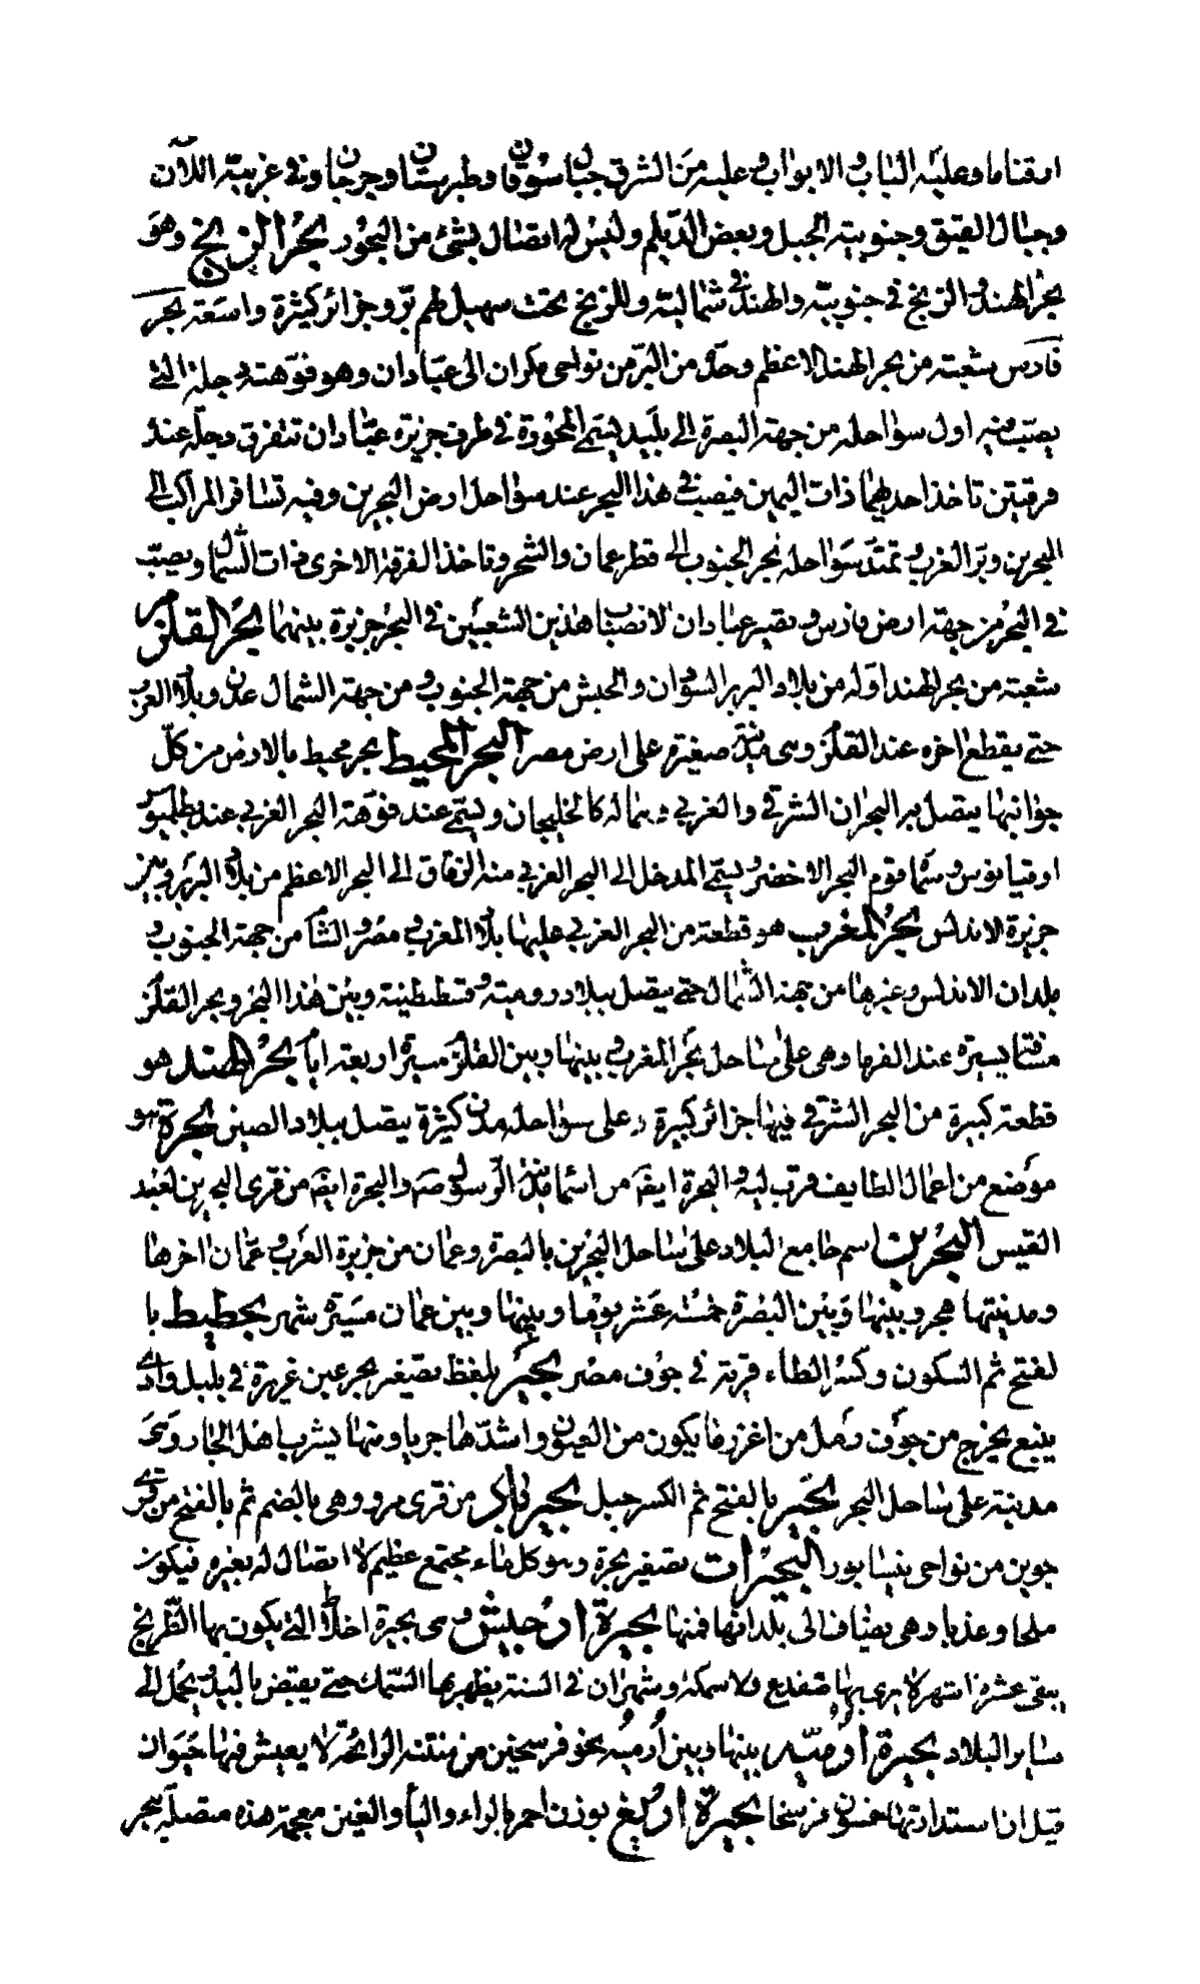 ارقناما وعليه الباب والابواب وعليه من الشرق جبال سوقان وطبرستان وجرجان وفي غربيه اللان
وجبال القيق وجنوبيه الجبل وبعض الديلم وليس له اتصال بشئ من البحور بحر الزنج وهو
بحر الهند والزنج في جنوبيه والهند في شماليه وللزنج تحت سهيل لهم بر وجزائر كثيرة واسعة بحر
فارس شعبة من بحر الهند الاعظم وحده من البر من نواحي مكران الى عبادان وهو فوهة دجلة التي
يصب فيه اول سواحله من جهة البصرة الى بليد يسمى المحوزة في طرف جزيرة عبادان تتفرق دجلة عنده
فرقتين تاخذ احديهما ذات اليمين فيصب في هذا البحر عند سواحل ارض البحرين وفيه تسافر المراكب الى
البحرين وبر العرب وتمتد سواحله نحر الجنوب الى قطر عمان والشحر وتاخذ الفرقة الاخرى ذات الشمال ويصب
في البحر من جهة ارض فارس وتصير عبادان لانصباب هذين الشعبين في البحر جزيرة بينهما بحر القلزم
شعبة من بحر الهند اوله من بلاد البربر السودان والحبش من جهة الجنوب ومن جهة الشمال عدن وبلاد العرب
حتى يقطع اخره عند القلزم وهي مدينة صغيرة على ارض مصر البحر المحيط بحر محيط بالارض من كل
جوانبها يتصل به البحران الشرقي والغربي وهما له كالخليجان ويسمى عند فوهة البحر الغربي عند بطلميوس
اوقيانوس وسماه قوم البحر الاخضر ويسمى المدخل الى البحر الغربي منه الزقاق الى البحر الاعظم من بلاد البربر وبين
جزيرة الاندلس بحر المغرب هو قطعة من البحر الغربي عليها بلاد المغرب ومصر والشام من جهة الجنوب و
بلدان الاندلس وغيرها من جهة الشمال حتى يتصل ببلاد رومية وقسطنطينية وبين هذا البحر وبحر القلزم
مسافة يسيرة عند الفرما وهي على ساحل بحر المغرب بينها وبين القلزم مسيرة اربعة ايام بحر الهند هو
قطعة كبيرة من البحر الشرقي فيها جزائر كبيرة وعلى سواحله مدن كثيرة يتصل ببلاد الصين بحرة هو
موضع من اعمال الطايف قرب لية والبحرة ايضا من اسماء مدينة الرسول صم والبحرة ايضا من قرى البحرين لعبد
القيس البحرين اسم جامع البلاد على ساحل البحرين بالبصرة وعمان من جزيرة العرب وعمان اخرها
ومدينتها هجر وبينها وبين البصرة خمسة عشر يوما وبينها وبين عمان مسيرة شهر بحطيط با
لفتح ثم السكون وكسر الطاء قرية في جوف مصر بحير بلفظ تصغير بحر عين غزيرة في بليل وادي
ينبع يخرج من جوف رمل من اغزر ما يكون من العيون واشدها جريا ومنها يشرب اهل الجار وهي
مدينة على ساحل البحر بحير بالفتح ثم الكسر جبل بحيراباد من قرى مرو وهي بالضم ثم بالفتح من قرى
جوين من نواحي نيسابور البحيرات تصغير بحرة وهو كل ماء مجتمع عظيم لا اتصال له بغيره فيكون
ملحا وعذبا وهي يضاف الى بلدانها فمنها بحيرة ارجيش وهي بحيرة اخلاط التي يكون بها الطريخ
يبقى عشرة اشهر لا يرى بها ضفدع ولا سمكة وشهران في السنة يظهر بها السمك حتى يقبض باليد ويحمل الى
ساير البلاد بحيرة ارمية بينها وبين ارمية نحو فرسخين من منتنة الرائحة لا يعيش فيها حيوان
قيل ان استدارتها خمسون فرسخا بحيرة اريغ بوزن احمر بالراء والياء والغين معجمة هذه متصلة ببحر